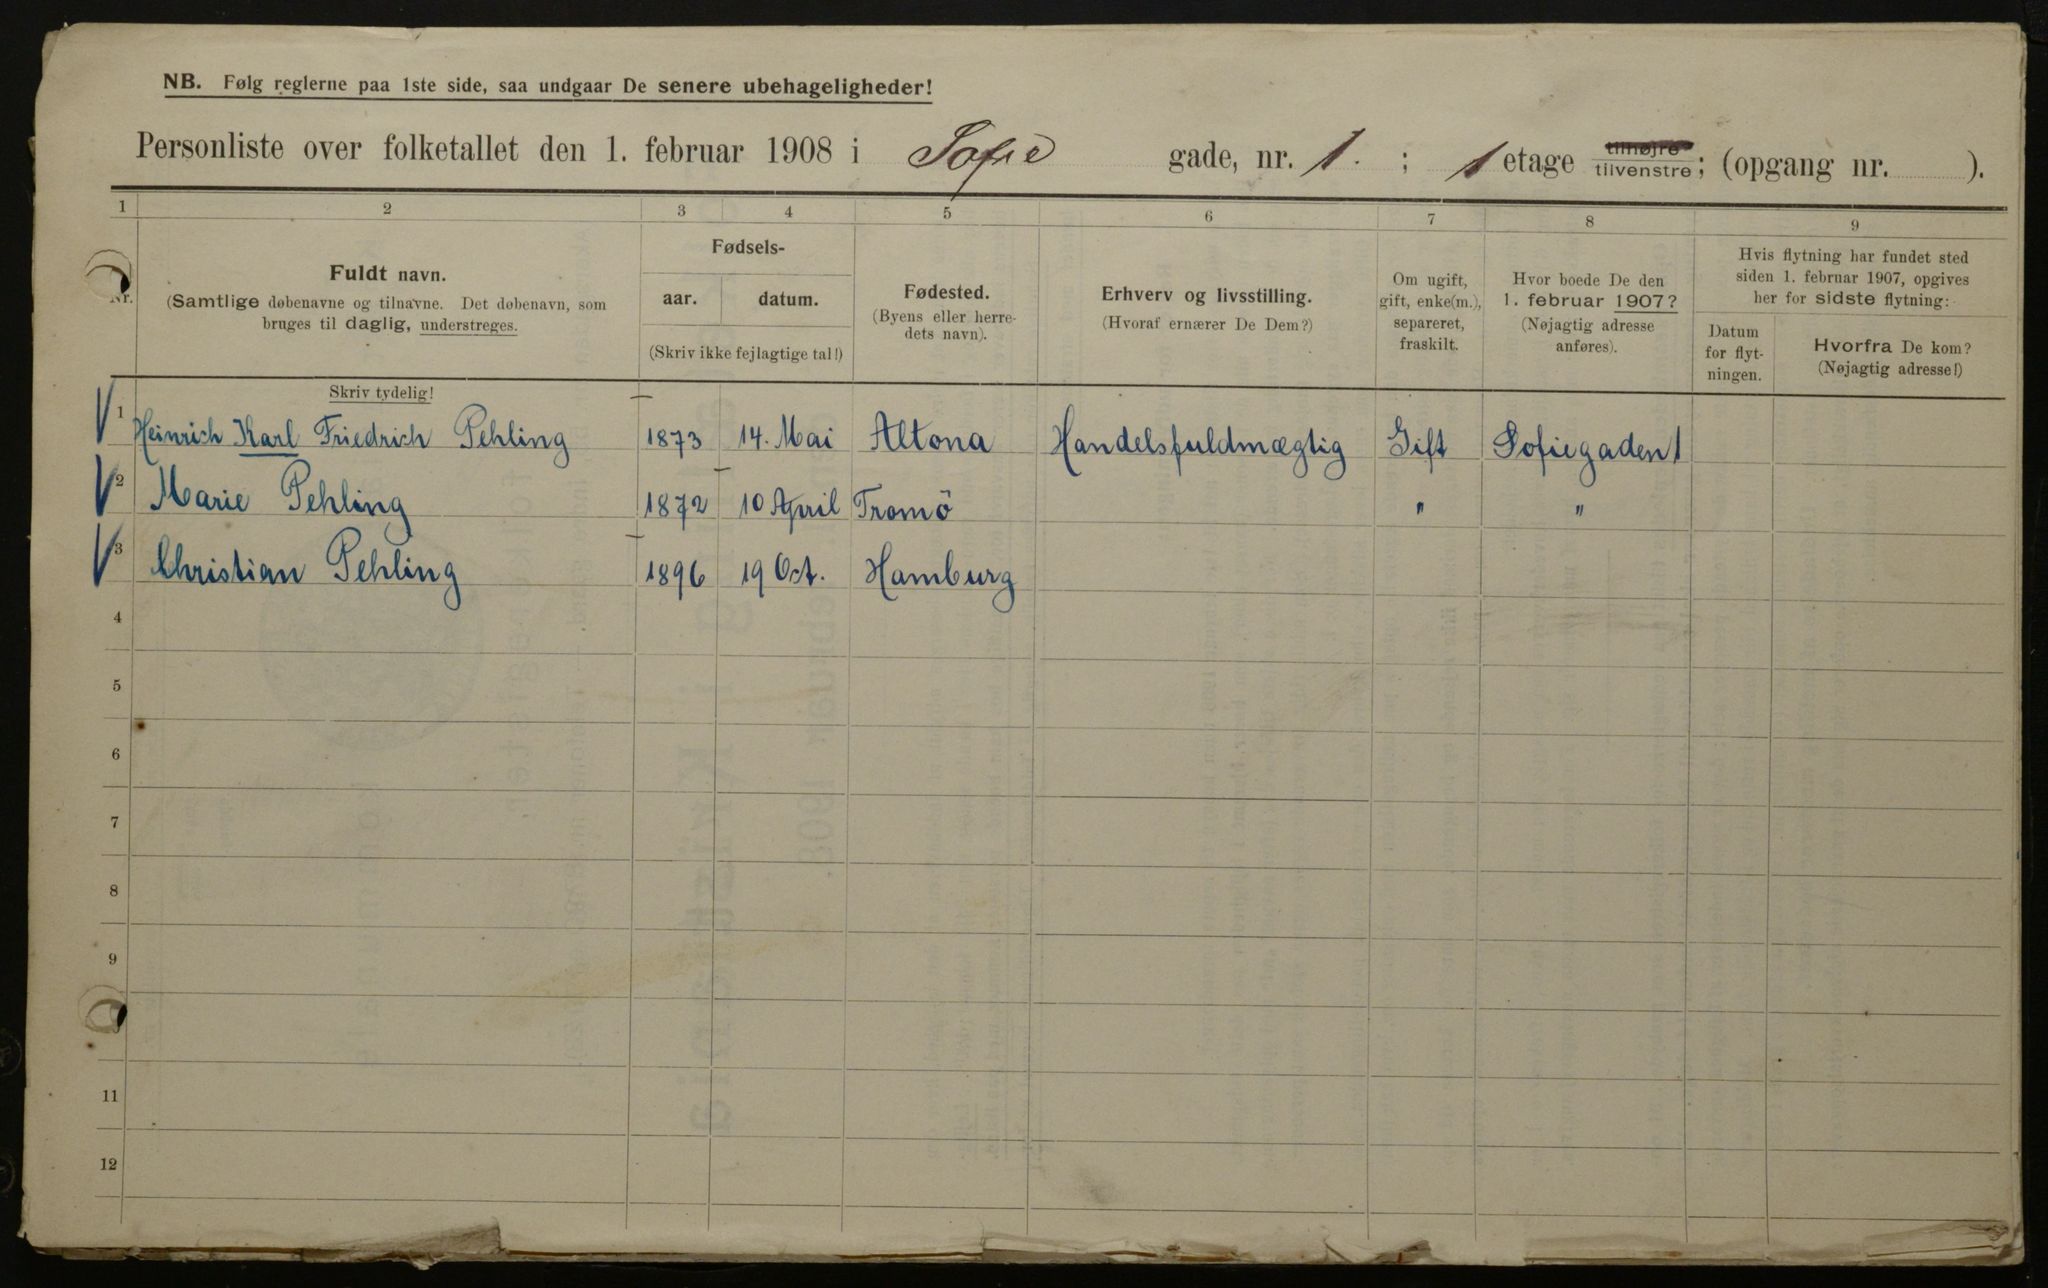 NB. Følg reglerne paa 1ste side, saa undgaar De senere ubehageligheder!
Personliste over folketallet den 1. februar 1908 i Sofie gade, nr. 1. ; 1 etage tilhøjre tilvenstre; (opgang nr. ).
1 2 3 4 5 6 7 8 9
Nr.
Fuldt navn.
(Samtlige døbenavne og tilnavne. Det døbenavn, som
bruges til daglig, understreges.
Skriv tydelig!
Fødsels-
aar. datum.
(Skriv ikke fejlagtige tal!)
Fødested.
(Byens eller herre-
dets navn).
Erhverv og livsstilling.
(Hvoraf ernærer De Dem?)
Om ugift,
gift, enke(m.),
separeret,
fraskilt.
Hvor boede De den
1. februar 1907?
(Nøjagtig adresse
anføres).
Hvis flytning har fundet sted
siden 1. februar 1907, opgives
her for sidste flytning:
Datum
for flyt-
ningen.
Hvorfra De kom?
(Nøjagtig adresse!)
1 Heinrich Karl Friedrich Pehling 1873 14. Mai Altona Handelsfuldmægtig Gift Sofiegaden 1
2 Marie Pehling 1872 10 April Tromö " "
3 Christian Pehling 1896 19 Oct. Hamburg
4
5
6
7
8
9
11
12